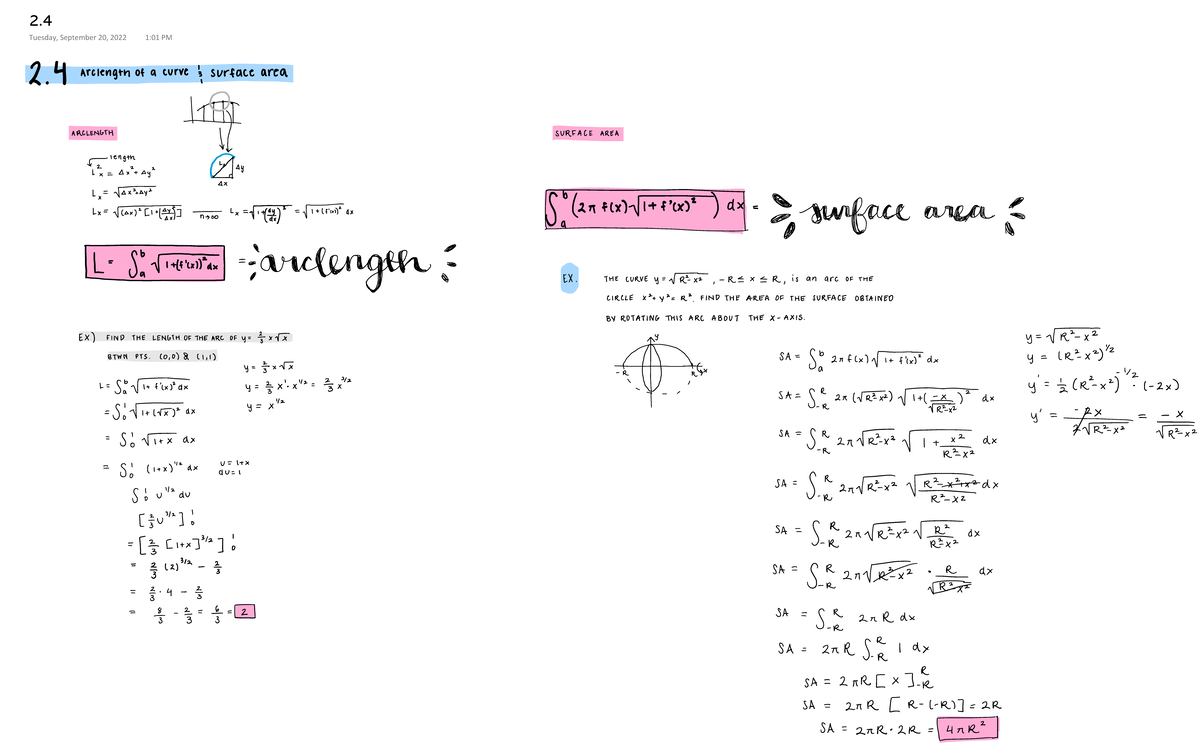 2.4
Tuesday, September 20, 2022 1:01 PM
2.4 Arclength of a curve & surface area
ARCLENGTH
length
L²ₓ = Δx² + Δy²
Lₓ = √(Δx² + Δy²)
Lₓ = √((Δx)² [1 + (Δy/Δx)²]) n→∞ Lₓ = √(1 + (dy/dx)²) = √(1 + (f'(x))²) dx
Lₓ
Δy
Δx
L = ∫ₐᵇ √(1 + (f'(x))²) dx = arclength
EX) FIND THE LENGTH OF THE ARC OF y = 2/3 x√x
BTWN PTS. (0,0) & (1,1)
L = ∫ₐᵇ √(1 + f'(x)²) dx
= ∫₀¹ √(1 + (√x)²) dx
= ∫₀¹ √(1+x) dx
= ∫₀¹ (1+x)^(1/2) dx
∫₀¹ u^(1/2) du
[2/3 u^(3/2)]₀¹
= [2/3 [1+x]^(3/2)]₀¹
= 2/3 (2)^(3/2) - 2/3
= 2/3 · 4 - 2/3
= 8/3 - 2/3 = 6/3 = 2
y = 2/3 x√x
y = 2/3 x¹ · x^(1/2) = 2/3 x^(3/2)
y = x^(1/2)
u = 1+x
du = 1
SURFACE AREA
∫ₐᵇ (2π f(x) √(1 + f'(x)²)) dx = surface area
EX. THE CURVE y = √(R²-x²), -R ≤ x ≤ R, is an arc OF THE
CIRCLE x² + y² = R². FIND THE AREA OF THE SURFACE OBTAINED
BY ROTATING THIS ARC ABOUT THE X-AXIS.
y
-R
R
x
SA = ∫ₐᵇ 2π f(x) √(1 + f'(x)²) dx
SA = ∫₋ᴿᴿ 2π (√(R²-x²)) √(1 + (-x/√(R²-x²))²) dx
SA = ∫₋ᴿᴿ 2π √(R²-x²) √(1 + x²/(R²-x²)) dx
SA = ∫₋ᴿᴿ 2π √(R²-x²) √((R²-x²+x²)/(R²-x²)) dx
SA = ∫₋ᴿᴿ 2π √(R²-x²) √(R²/(R²-x²)) dx
SA = ∫₋ᴿᴿ 2π √(R²-x²) · R/√(R²-x²) dx
SA = ∫₋ᴿᴿ 2πR dx
SA = 2πR ∫₋ᴿᴿ 1 dx
SA = 2πR [x]₋ᴿᴿ
SA = 2πR [R-(-R)] = 2R
SA = 2πR · 2R = 4πR²
y = √(R²-x²)
y = (R²-x²)^(1/2)
y' = 1/2 (R²-x²)^(-1/2) · (-2x)
y' = -2x/(2√(R²-x²)) = -x/√(R²-x²)